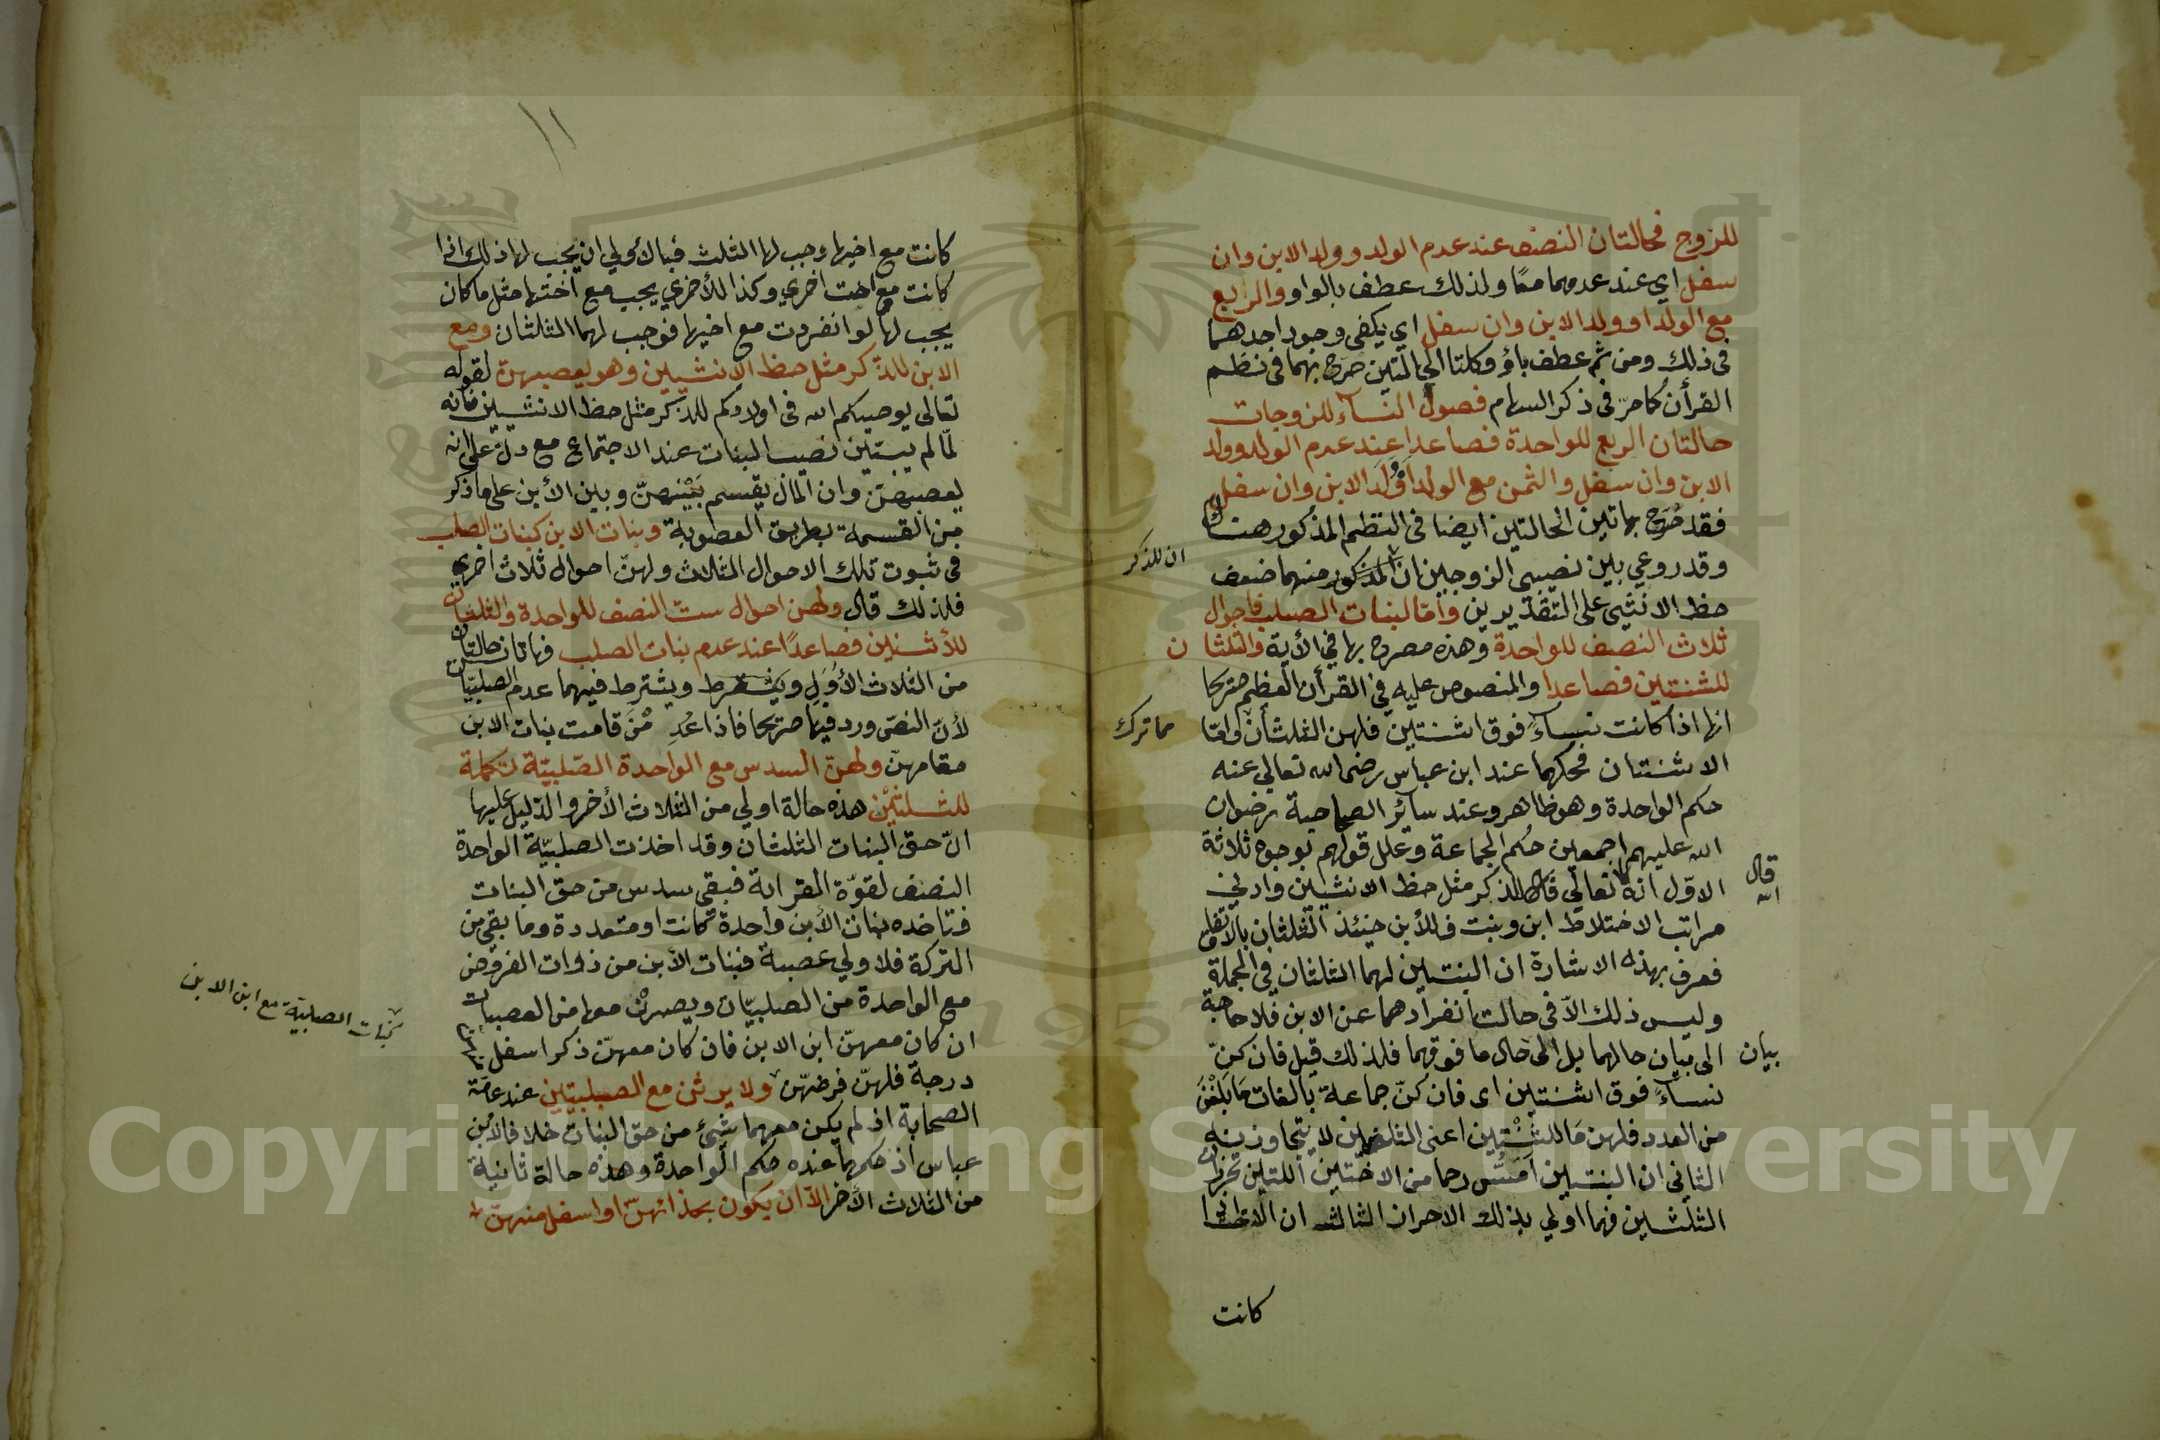 للزوج فحالتان النصف عند عدم الولد وولد الابن وان
سفل اي عند عدمهما معًا ولذلك عطف بالواو والربع
مع الولد او ولد الابن وان سفل اي يكفي وجود احدهما
في ذلك ومن ثم عطف باؤ وكلتا الحالتين صرح بهما في نظم
القرأن كما مرّ في ذكر السهام فصول النسآء للزوجات
حالتان الربع للواحدة فصاعدا عند عدم الولد وولد
الابن وان سفل والثمن مع الولد او ولد الابن وان سفل
فقد صرح بهاتين الحالتين ايضا في النظم المذكور هناك
وقد روعي بين نصيبي الزوجين ان المذكور منهما ضعف
ان للذكر
حظ الانثي على التقديرين وامّا لبنات الصلب فاحوال
ثلاث النصف للواحدة وهذه مصرح بها في الأية والثلثان
للثنتين فصاعدا والمنصوص عليه في القرأن العظم صريحا
انها اذا كانت نسآءً فوق اثنتين فلهن الثلثان وامّا
مما ترك
الاثنتان فحكهما عند ابن عباس رضي الله تعالي عنه
حكم الواحدة وهو ظاهر وعند سآئر الصحابة رضوان
الله عليهم اجمعين حُكم الجماعة وعلل قولهم بوجوه ثلاثة
الاوّل انه تعالي قال للذكر مثل حظ الانثيين وادني
قال الله
مراتب الاختلاط ابن وبنت فللأبن حينئذ الثلثان بالاتفاق
فعرف بهذه الاشارة ان البنتين لهما الثلثان في الجملة
وليس ذلك الاّ في حالت انفرادهما عن الابن فلا حاجة
الى بيان حالهما بل الى حال ما فوقهما فلذلك قيل فان كنّ
بيان
نسآءً فوق اثنتين اى فان كنّ جماعة بالغات مَا بلغْنَ
من العدد فلهن مَا للثنْتين اعنى الثلثين لا يتجاوزنه
الثاني ان البنتين امَسُّ رحما من الاختين اللتين تحرزان
الثلثين فهما اولي بذلك الاحراز الثالث ان
كانت
١١
كانت مع اخيها وجب لها الثلث فبالأولي ان يجب لها ذلك اذا
كانت مع اخت اخري وكذا للأخري يجب مع اختها مثل ما كان
يجب لها لو انفردت مع اخيها فوجب لهما الثلثان ومع
الابن للذكر مثل حظ الانثيين وهو يعصبهن لقوله
تعالي يوصيكم الله في اولادكم للذكر مثل حظ الانثيين فانه
لمّا لم يبيّن نصيب البنات عند الاجتماع مع دلّ على انه
يعصبهنّ وان المال يقسم بيْنهنّ وبين الأبن على ما ذكر
من القسمة بطريق العصوبة وبنات الابن كبنات الصلب
في ثبوت تلك الاحوال الثلاث ولهنّ احوال ثلاث اخري
فلذلك قال ولهن احوال ستّ النصف للواحدة والثلثان
للأثنتين فصاعدًا عند عدم بنات الصلب فهاتان حالتان
من الثلاث الأوَل ويشترط فيهما عدم الصلبيّات
لأنّ النصّ ورد فيها صريحا فاذا عُدِ مْنَ قامت بنات الابن
مقامهنّ ولهنّ السدس مع الواحدة الصّلبيّة تكملة
للثلثيْن هذه حالة اولي من الثلاث الأخر والدّليل عليها
انّ حق البنات الثلثان وقد اخذت الصلبيّة الواحدة
النصف لقوّة القرابة فبقى سدس من حق البنات
فتاخذه بنات الأبن واحدة كانت او متعددة وما بقي من
التركة فلاولي عصبة فبنات الأبن من ذوات الفروض
مع الواحدة من الصلبيّات ويصرْن معها من العصبات
ان كان معهنّ ابن الابن فان كان معهنّ ذكرا سفل
كبنات الصلبيّة مع ابن الابن
درجة فلهنّ فرضهنّ ولا يرثن مع الصلبيّتين عند عامّة
الصحابة اذ لم يكن معهما شئ من حق البنات خلافا لأبن
عباس اذ حكمهما عنده حكم الواحدة وهذه حالة ثانية
من الثلاث الأخر الاّ ان يكون بحذائهنّ او اسفل منهنّ
Copyright © King Saud University
1957